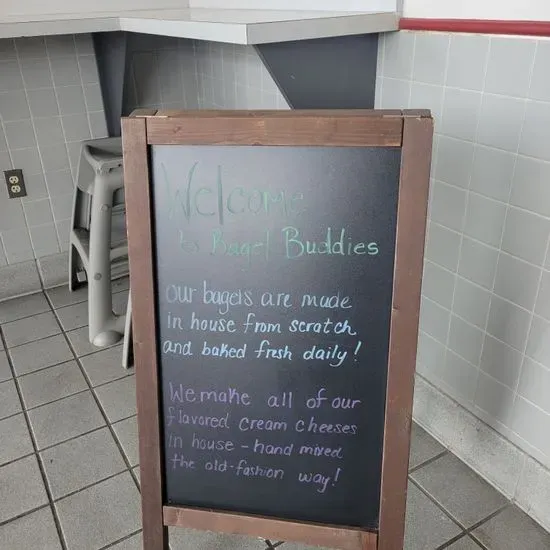 Welcome
to Bagel Buddies
Our bagels are made
in house from scratch
and baked fresh daily!
We make all of our
flavored cream cheeses
in house - hand mixed
the old-fashion way!